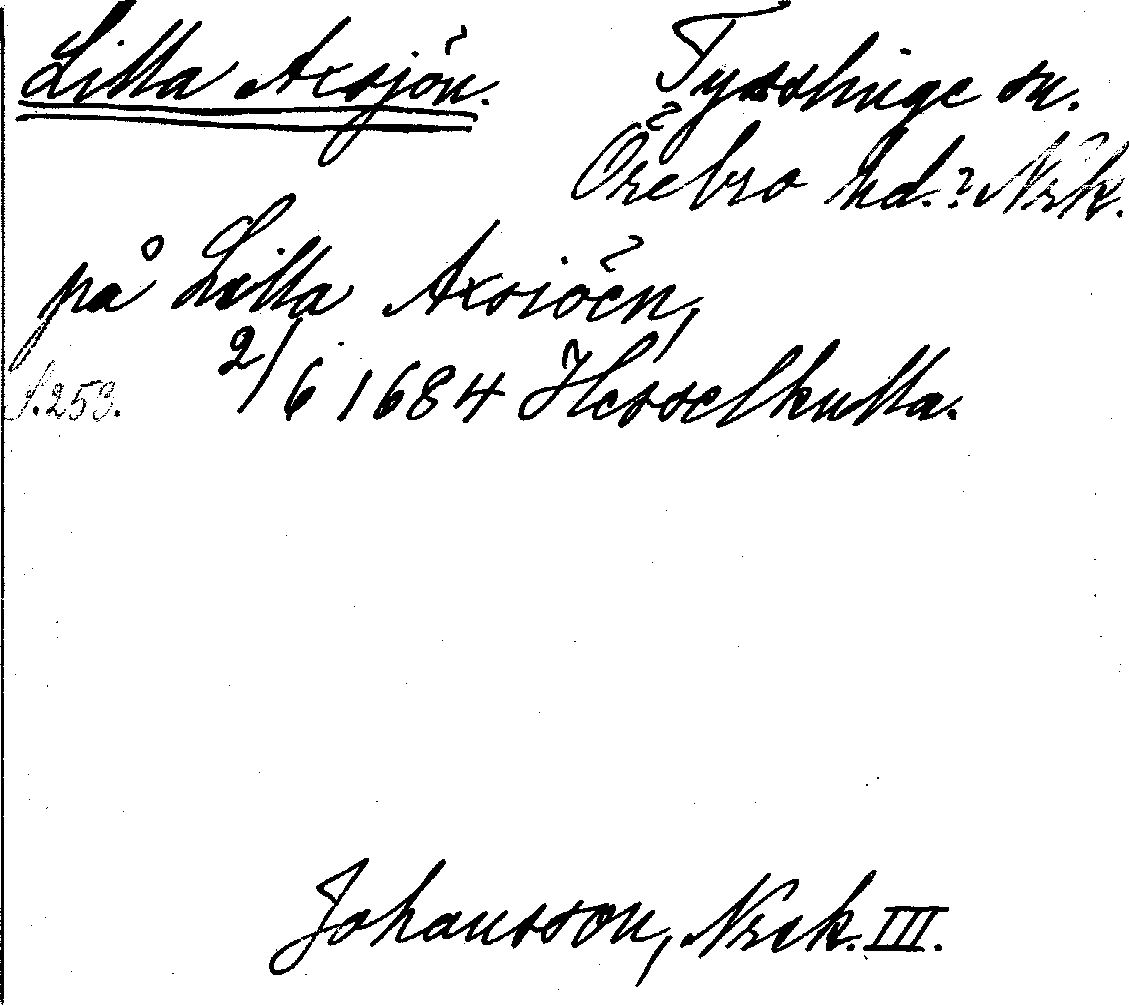 Litta Axsjön.
Tysslinge sn.
Örebro hd.? Nrk.
på Litta Axsiöen,
S.253. 2/6 1684 Hesselkulla.
Johansson, Nrck. III.